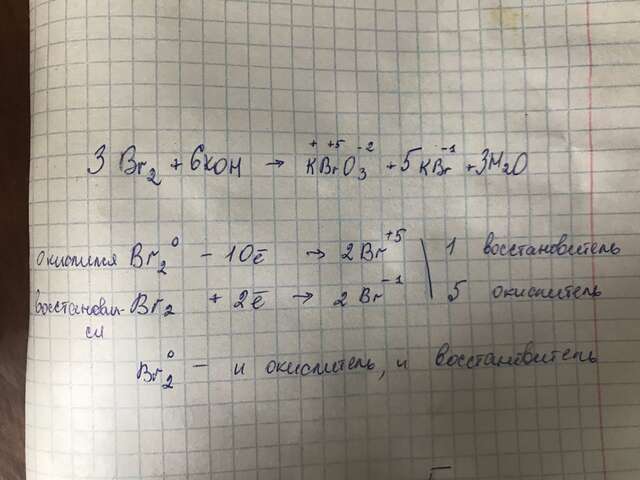 3 Br₂ + 6KOH → K⁺Br⁺⁵O₃⁻² + 5KBr⁻¹ + 3H₂O
окислился Br₂⁰ - 10ē → 2Br⁺⁵ | 1 восстановитель
восстановил- Br₂ + 2ē → 2Br⁻¹ | 5 окислитель
ся
Br₂⁰ — и окислитель, и восстановитель